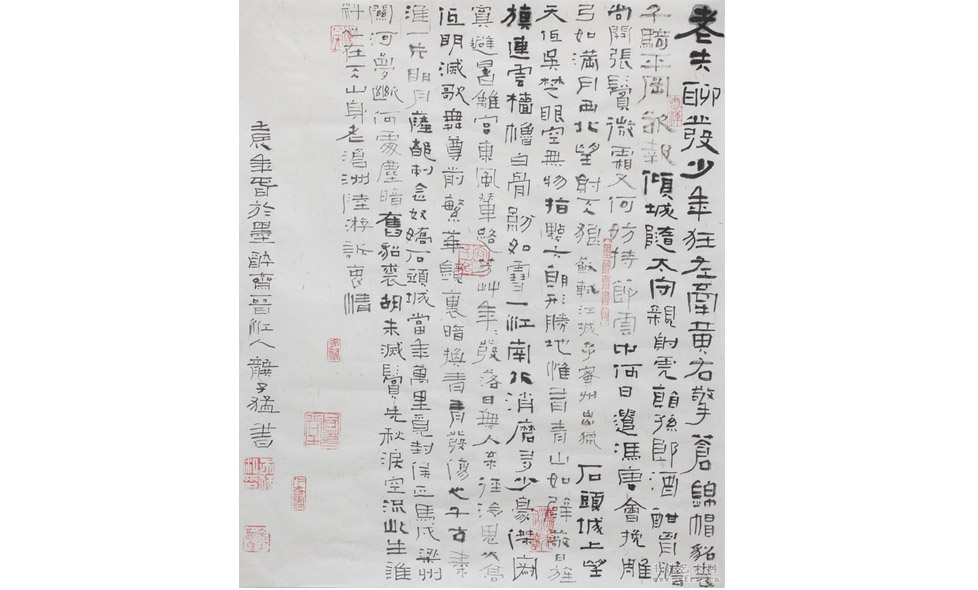 老夫聊發少年狂左牽黃右擎蒼錦帽貂裘
千騎平岡欲報傾城隨太守親射虎孫郎酒酣胷膽
尚開張鬢微霜又何妨持節雲中何日遣馮唐會挽雕
弓如滿月西北望射天狼 蘇軾江城子密州出獵 石頭城上望
天低吳楚眼空無物指點六朝形勝地惟有青山如壁蔽日旌
旗連雲檣櫓白骨紛如雪一江南北消磨多少豪傑寂
寞避暑離宮東風輦路芳艸年年發落日無人徑冷鬼火高
低明滅歌舞尊前繁華鏡裏暗換青青發傷心千古秦
淮一片明月薩都剌念奴嬌石頭城當年萬里覓封侯匹馬戍梁州
關河夢斷何處塵暗舊貂裘胡未滅鬢先秋淚空流此生誰
料心在天山身老滄洲陸游訴衷情
年春於墨醉齋晉江人龔子猛書